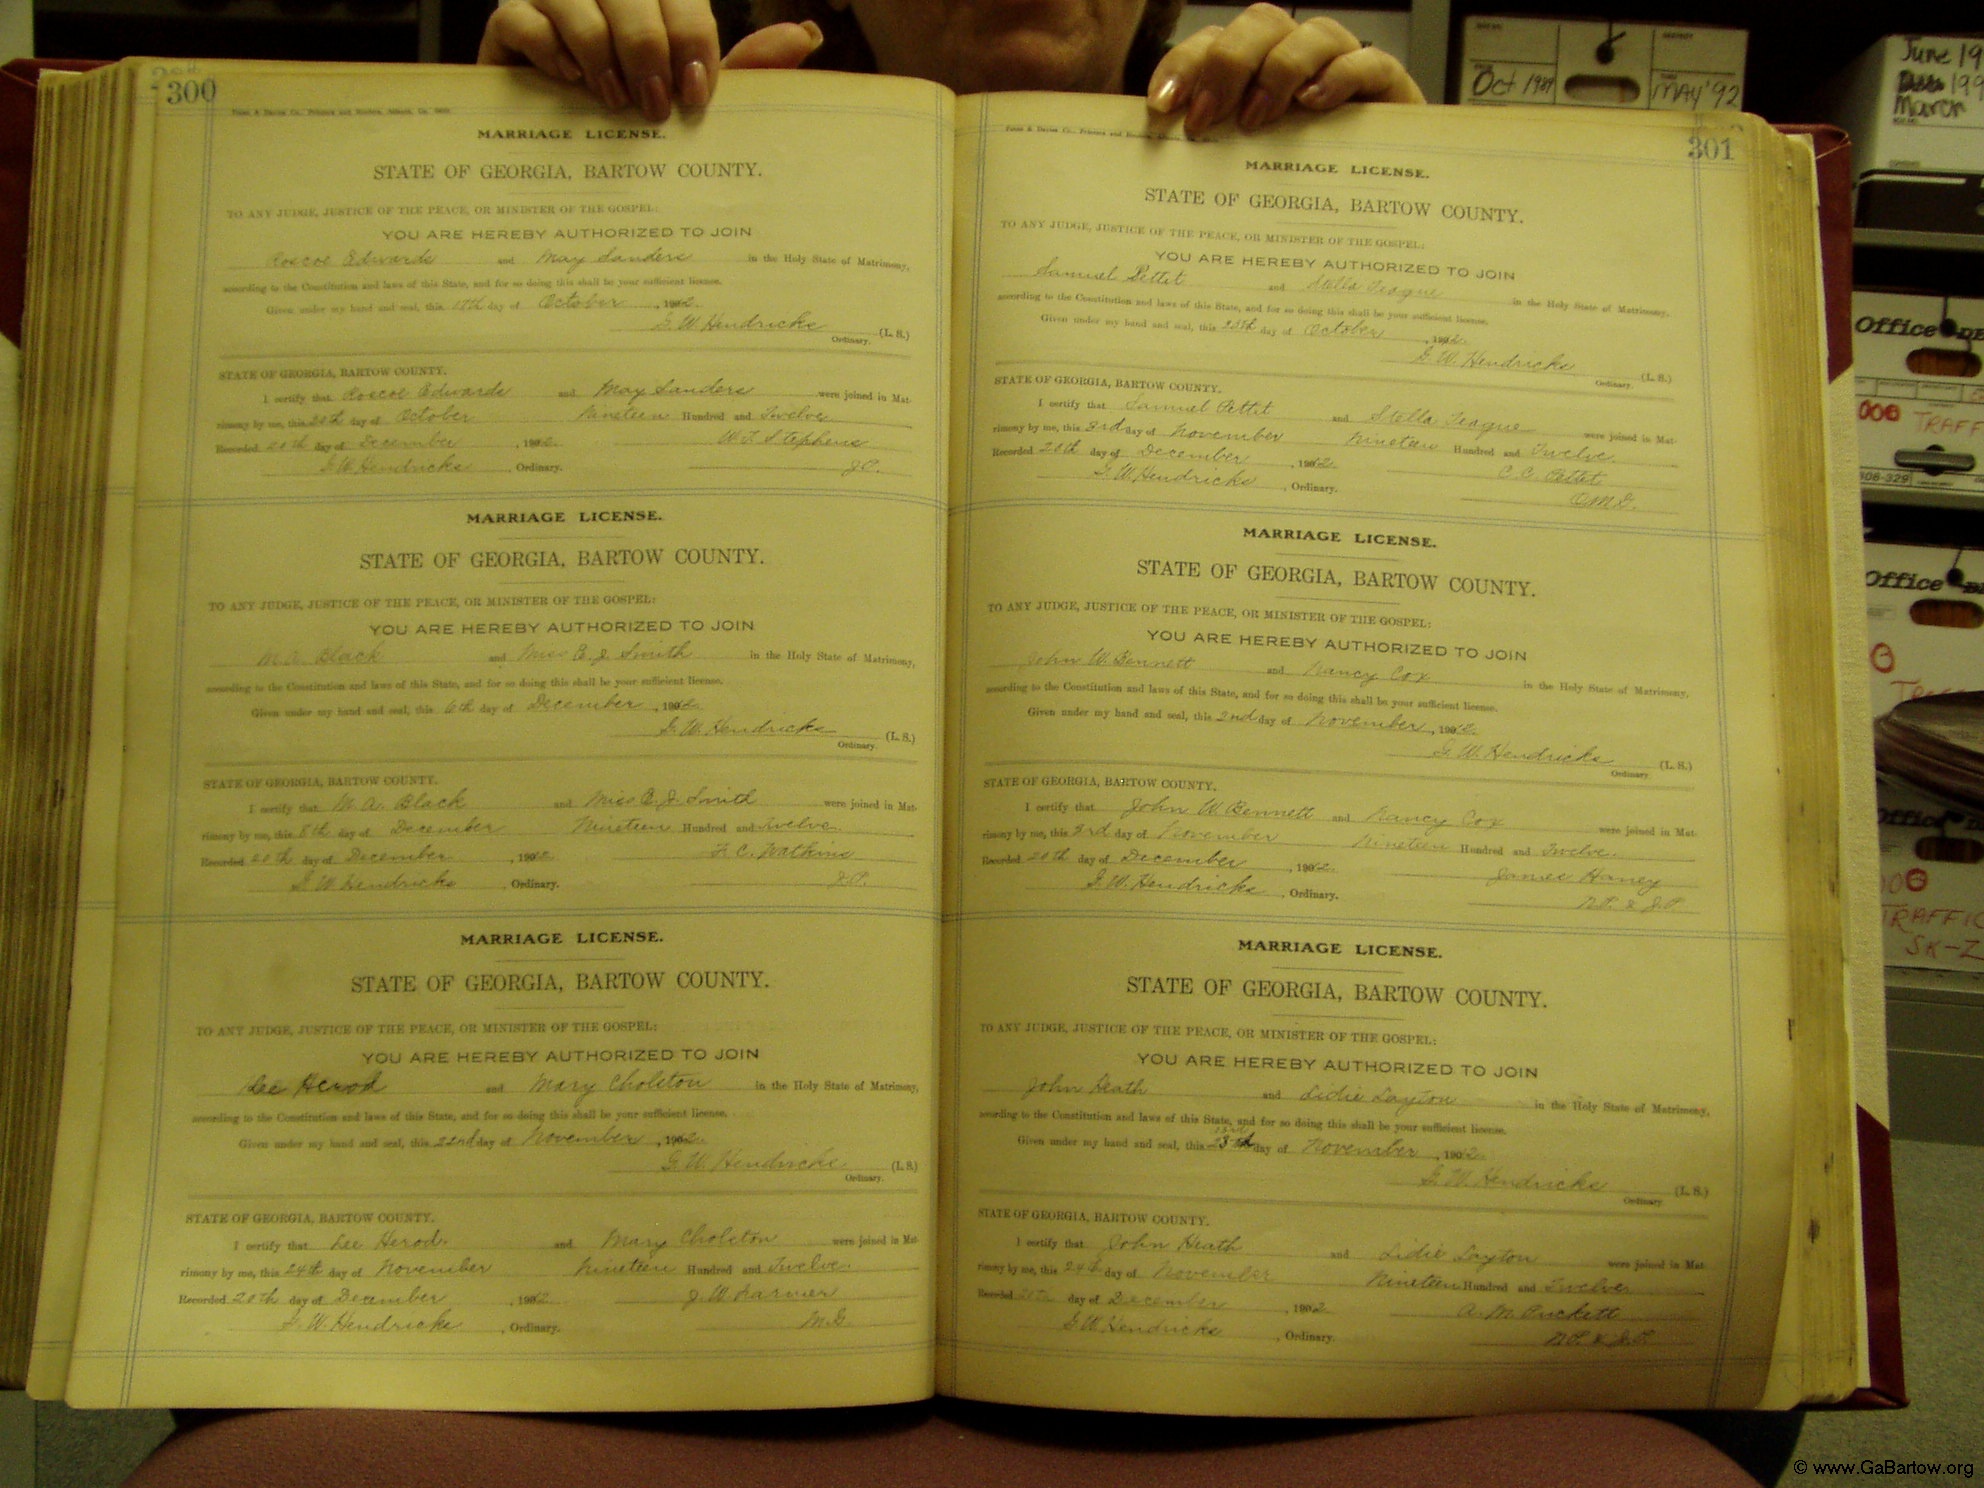 300
MARRIAGE LICENSE.
STATE OF GEORGIA, BARTOW COUNTY.
TO ANY JUDGE, JUSTICE OF THE PEACE, OR MINISTER OF THE GOSPEL:
YOU ARE HEREBY AUTHORIZED TO JOIN
Roscoe Edwards and May Sanders in the Holy State of Matrimony,
according to the Constitution and laws of this State, and for so doing this shall be your sufficient license.
Given under my hand and seal, this 17th day of October, 1912.
G.W. Hendricks (L. S.)
Ordinary.
STATE OF GEORGIA, BARTOW COUNTY.
I certify that Roscoe Edwards and May Sanders were joined in Mat-
rimony by me, this 20th day of October Nineteen Hundred and Twelve
Recorded 20th day of December, 1912. W.T. Stephens
G.W. Hendricks, Ordinary. J.P.
MARRIAGE LICENSE.
STATE OF GEORGIA, BARTOW COUNTY.
TO ANY JUDGE, JUSTICE OF THE PEACE, OR MINISTER OF THE GOSPEL:
YOU ARE HEREBY AUTHORIZED TO JOIN
M.A. Black and Miss E.J. Smith in the Holy State of Matrimony,
according to the Constitution and laws of this State, and for so doing this shall be your sufficient license.
Given under my hand and seal, this 6th day of December, 1912.
G.W. Hendricks (L. S.)
Ordinary.
STATE OF GEORGIA, BARTOW COUNTY.
I certify that M.A. Black and Miss E.J. Smith were joined in Mat-
rimony by me, this 8th day of December Nineteen Hundred and Twelve
Recorded 20th day of December, 1912. F.C. Watkins
G.W. Hendricks, Ordinary. J.P.
MARRIAGE LICENSE.
STATE OF GEORGIA, BARTOW COUNTY.
TO ANY JUDGE, JUSTICE OF THE PEACE, OR MINISTER OF THE GOSPEL:
YOU ARE HEREBY AUTHORIZED TO JOIN
Lee Herod and Mary Cholston in the Holy State of Matrimony,
according to the Constitution and laws of this State, and for so doing this shall be your sufficient license.
Given under my hand and seal, this 22nd day of November, 1912.
G.W. Hendricks (L. S.)
Ordinary.
STATE OF GEORGIA, BARTOW COUNTY.
I certify that Lee Herod and Mary Cholston were joined in Mat-
rimony by me, this 24th day of November Nineteen Hundred and Twelve
Recorded 20th day of December, 1912. J.W. Farmer
G.W. Hendricks, Ordinary. M.G.
301
MARRIAGE LICENSE.
STATE OF GEORGIA, BARTOW COUNTY.
TO ANY JUDGE, JUSTICE OF THE PEACE, OR MINISTER OF THE GOSPEL:
YOU ARE HEREBY AUTHORIZED TO JOIN
Samuel Pettit and Stella Teague in the Holy State of Matrimony,
according to the Constitution and laws of this State, and for so doing this shall be your sufficient license.
Given under my hand and seal, this 25th day of October, 1912.
G.W. Hendricks (L. S.)
Ordinary.
STATE OF GEORGIA, BARTOW COUNTY.
I certify that Samuel Pettit and Stella Teague were joined in Mat-
rimony by me, this 3rd day of November Nineteen Hundred and Twelve
Recorded 20th day of December, 1912. C.C. Pettit
G.W. Hendricks, Ordinary. O.M.G.
MARRIAGE LICENSE.
STATE OF GEORGIA, BARTOW COUNTY.
TO ANY JUDGE, JUSTICE OF THE PEACE, OR MINISTER OF THE GOSPEL:
YOU ARE HEREBY AUTHORIZED TO JOIN
John W. Bennett and Nancy Cox in the Holy State of Matrimony,
according to the Constitution and laws of this State, and for so doing this shall be your sufficient license.
Given under my hand and seal, this 2nd day of November, 1912.
G.W. Hendricks (L. S.)
Ordinary
STATE OF GEORGIA, BARTOW COUNTY.
I certify that John W. Bennett and Nancy Cox were joined in Mat-
rimony by me, this 3rd day of November Nineteen Hundred and Twelve
Recorded 20th day of December, 1912. James Haney
G.W. Hendricks, Ordinary. N.P. & J.P.
MARRIAGE LICENSE.
STATE OF GEORGIA, BARTOW COUNTY.
TO ANY JUDGE, JUSTICE OF THE PEACE, OR MINISTER OF THE GOSPEL:
YOU ARE HEREBY AUTHORIZED TO JOIN
John Heath and Lidie Layton in the Holy State of Matrimony,
according to the Constitution and laws of this State, and for so doing this shall be your sufficient license.
Given under my hand and seal, this 23rd day of November, 1912.
G.W. Hendricks (L. S.)
Ordinary
STATE OF GEORGIA, BARTOW COUNTY.
I certify that John Heath and Lidie Layton were joined in Mat-
rimony by me, this 24th day of November Nineteen Hundred and Twelve
Recorded 20th day of December, 1912 A.M. Puckett
G.W. Hendricks, Ordinary. N.P. & J.P.
Oct 1989
MAY '92
June 19
March
Office
TRAFF
Office
Office
TRAFFIC
SK-Z
© www.GaBartow.org